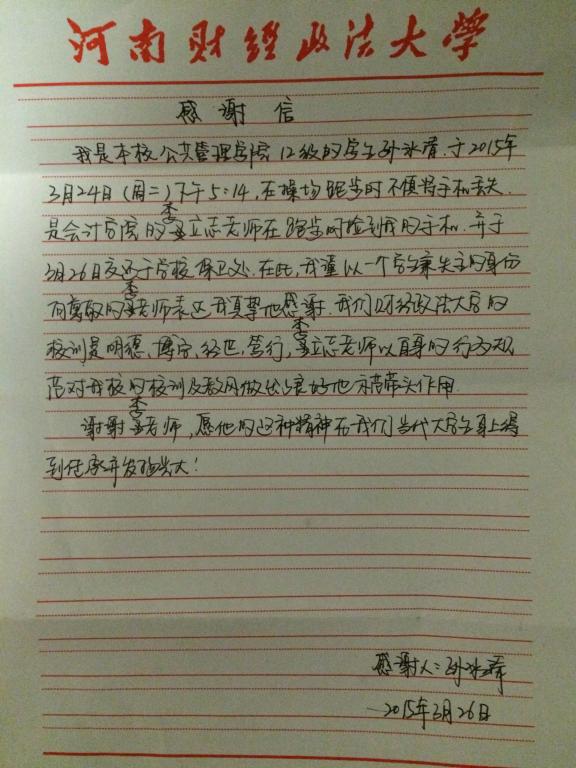 河南财经政法大学
感谢信
我是本校公共管理学院12级的学生孙冰清,于2015年
3月24日(周二)下午5:14,在操场跑步时不慎将手机丢失,
是会计学院的李立志老师在跑步时捡到我的手机,并于
3月26日交还于学校保卫处,在此,我谨以一个学生兼失主的身份
向尊敬的李老师表达我真挚地感谢,我们财经政法大学的
校训是明德、博学、经世、笃行,李立志老师以自身的行为规
范对我校的校训及教风做出了良好地示范带头作用
谢谢李老师,愿他的这种精神在我们当代大学生身上得
到传承并发扬光大!
感谢人:孙冰清
2015年3月26日